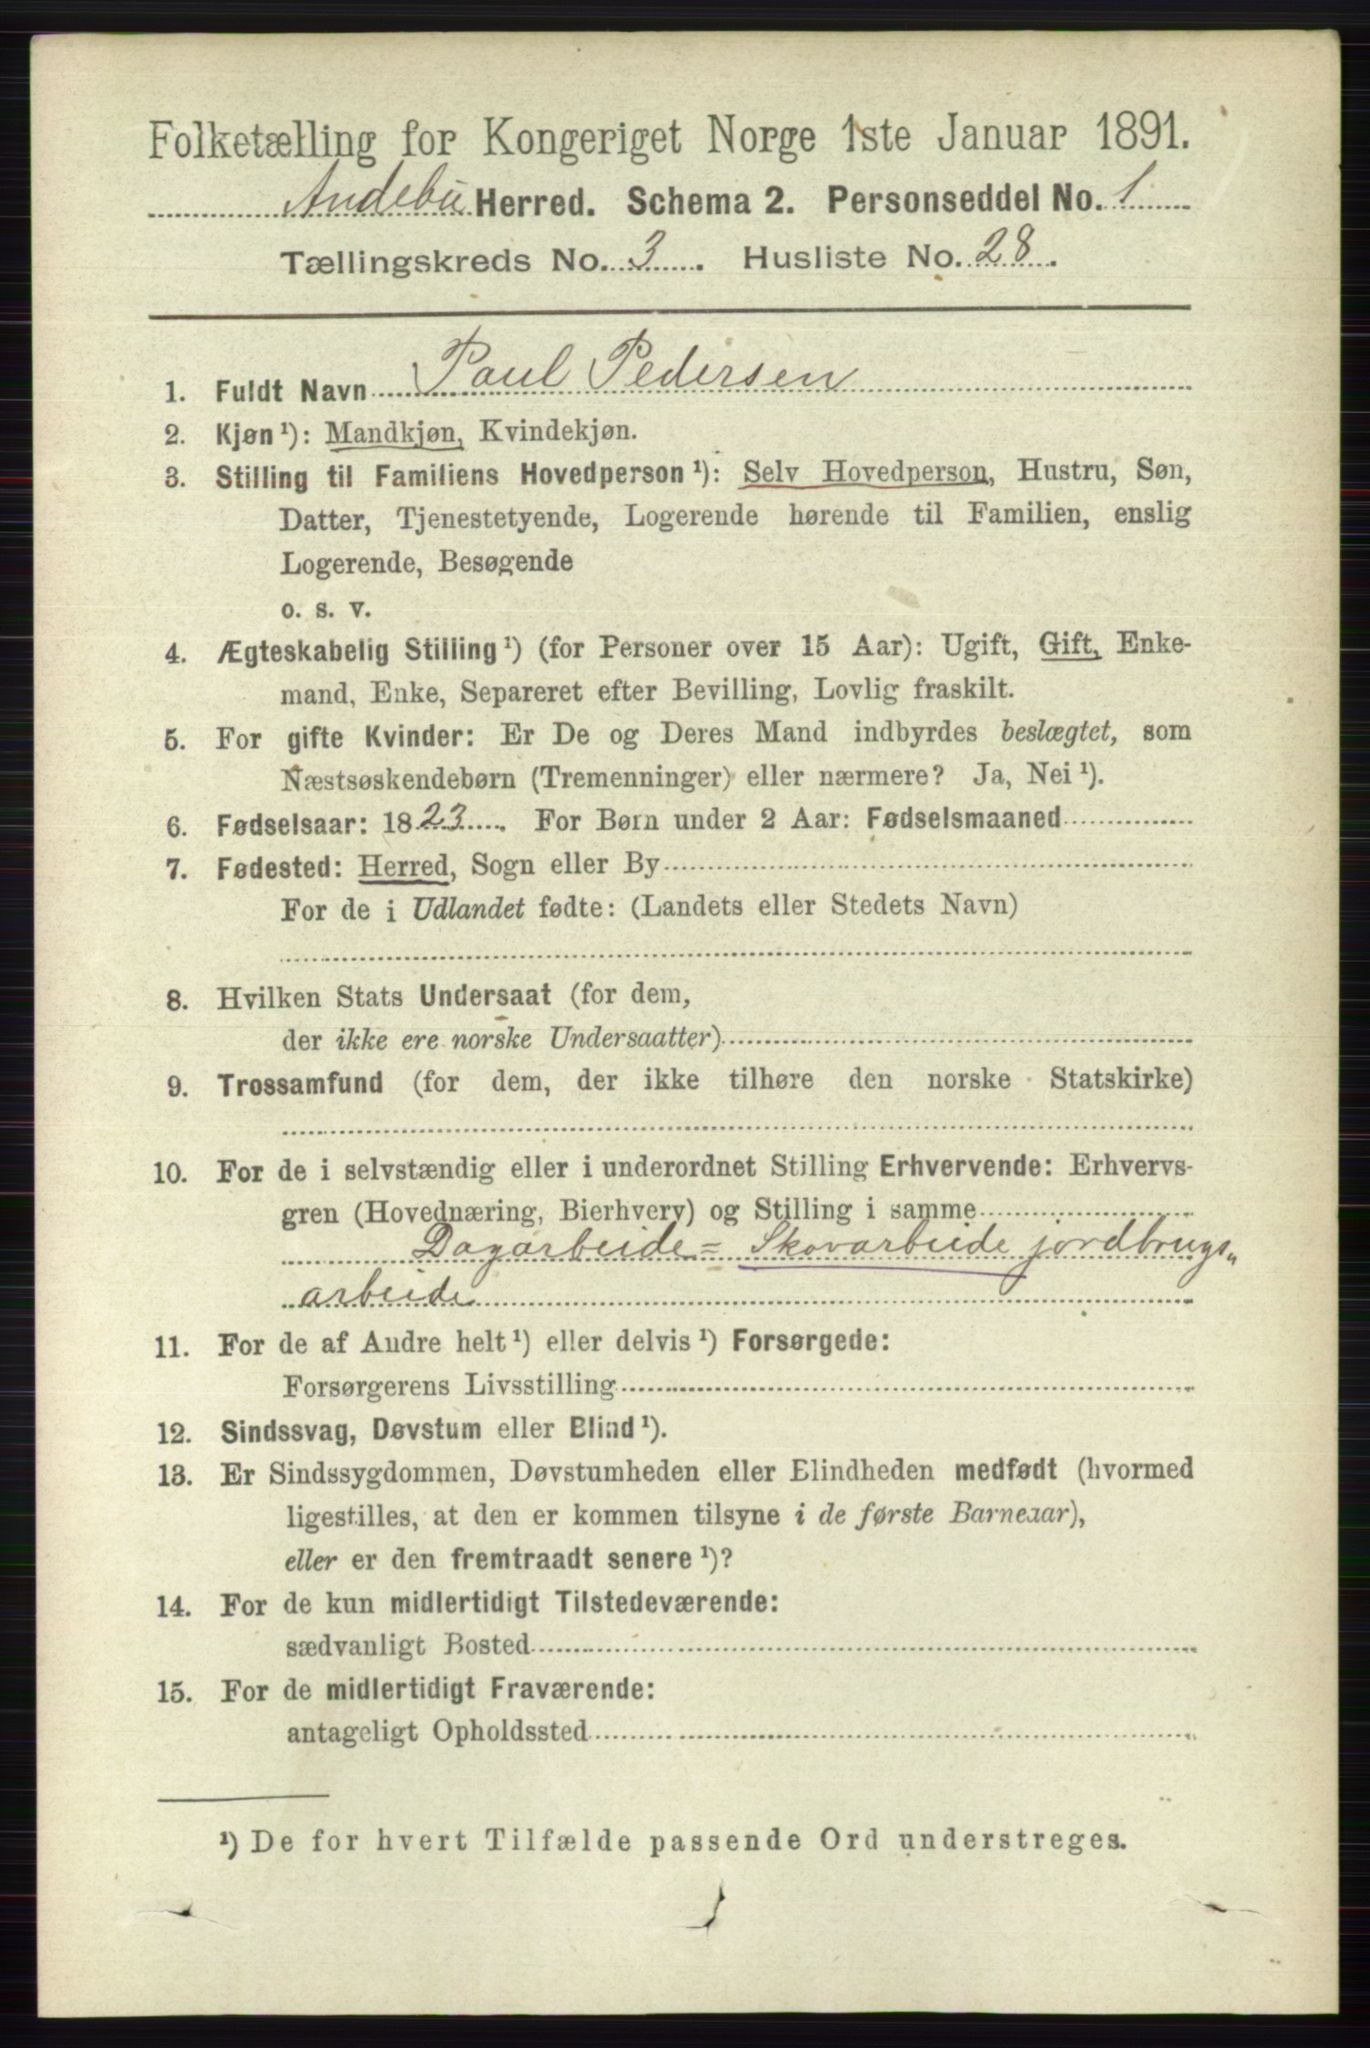 Folketælling for Kongeriget Norge 1ste Januar 1891.
Andebu Herred. Schema 2. Personseddel No. 1
Tællingskreds No. 3. Husliste No. 28.
1. Fuldt Navn Paul Pedersen
2. Kjøn ¹): Mandkjøn, Kvindekjøn.
3. Stilling til Familiens Hovedperson ¹): Selv Hovedperson, Hustru, Søn,
Datter, Tjenestetyende, Logerende hørende til Familien, enslig
Logerende, Besøgende
o. s. v.
4. Ægteskabelig Stilling ¹) (for Personer over 15 Aar): Ugift, Gift, Enke-
mand, Enke, Separeret efter Bevilling, Lovlig fraskilt.
5. For gifte Kvinder: Er De og Deres Mand indbyrdes beslægtet, som
Næstsøskendebørn (Tremenninger) eller nærmere? Ja, Nei ¹).
6. Fødselsaar: 1823. For Børn under 2 Aar: Fødselsmaaned
7. Fødested: Herred, Sogn eller By
For de i Udlandet fødte: (Landets eller Stedets Navn)
8. Hvilken Stats Undersaat (for dem,
der ikke ere norske Undersaatter)
9. Trossamfund (for dem, der ikke tilhøre den norske Statskirke)
10. For de i selvstændig eller i underordnet Stilling Erhvervende: Erhvervs-
gren (Hovednæring, Bierhverv) og Stilling i samme
Dagarbeide = Skovarbeide jordbrugs„
arbeide
11. For de af Andre helt ¹) eller delvis ¹) Forsørgede:
Forsørgerens Livsstilling
12. Sindssvag, Døvstum eller Blind ¹).
13. Er Sindssygdommen, Døvstumheden eller Blindheden medfødt (hvormed
ligestilles, at den er kommen tilsyne i de første Barneaar),
eller er den fremtraadt senere ¹)?
14. For de kun midlertidigt Tilstedeværende:
sædvanligt Bosted
15. For de midlertidigt Fraværende:
antageligt Opholdssted
¹) De for hvert Tilfælde passende Ord understreges.